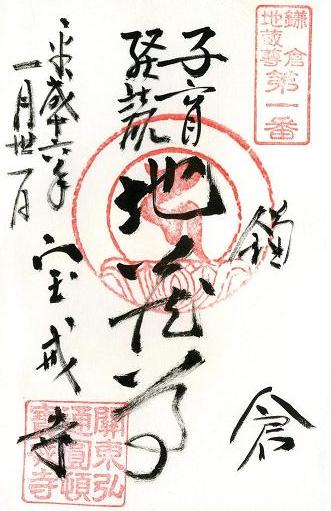 鎌倉
地蔵尊
第一番
鎌倉
子育
経読
地蔵尊
宝戒寺
平成十六年
一月廿一日
關東弘
通圓頓
寶戒寺